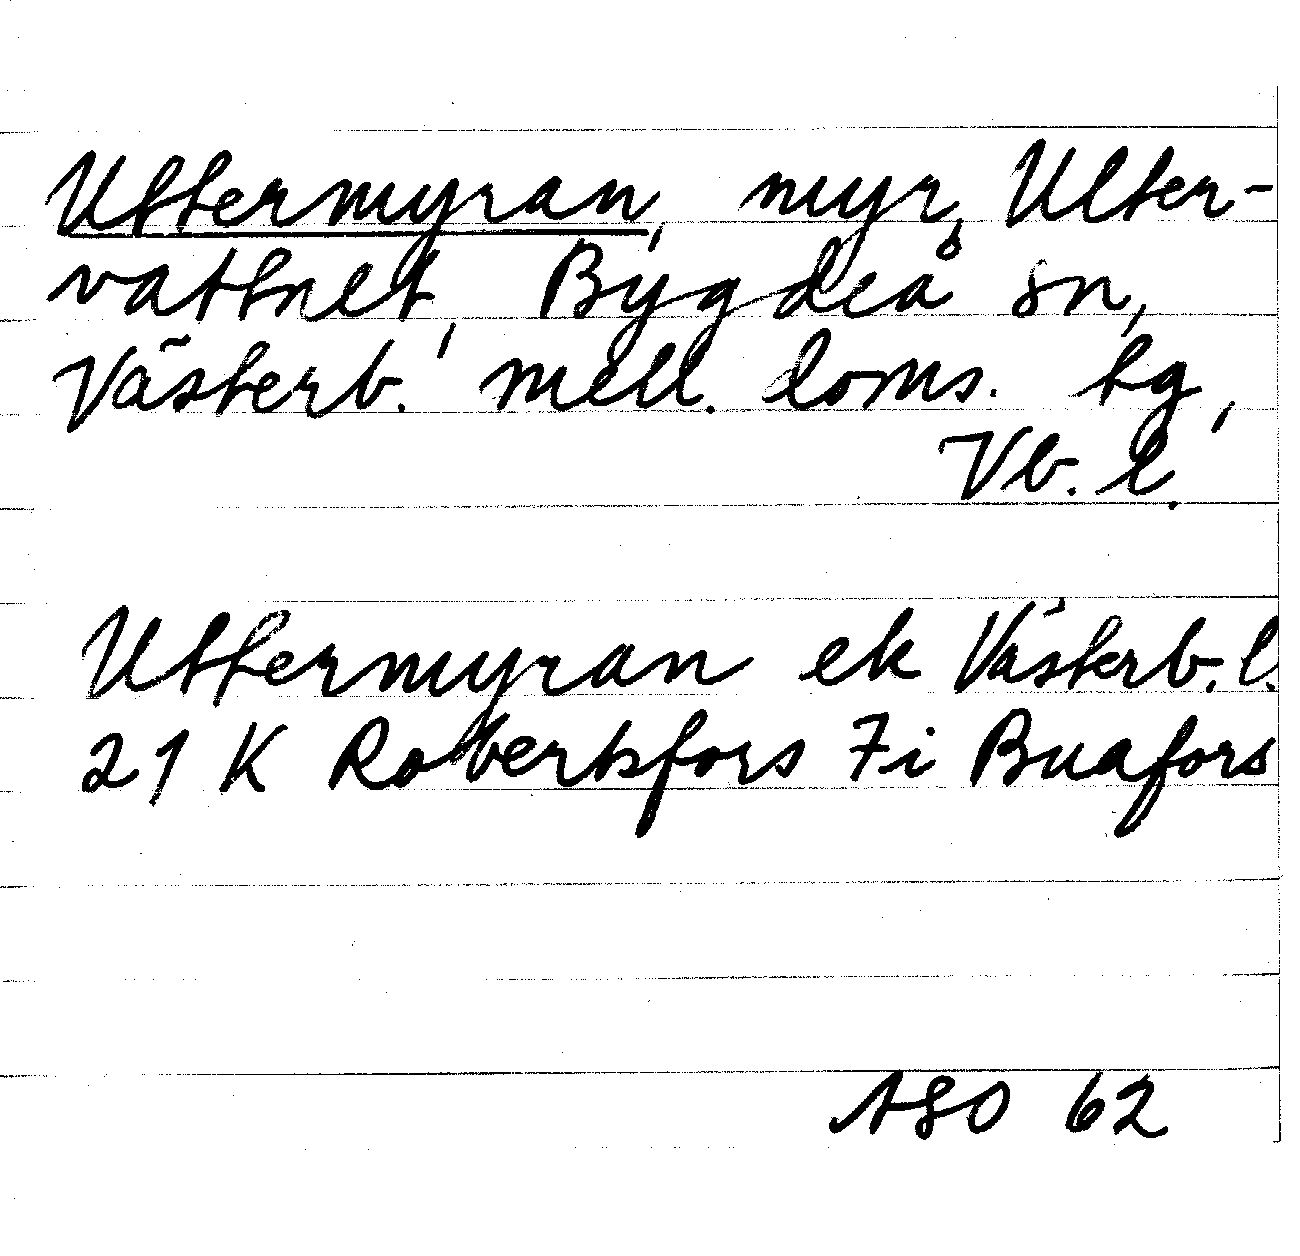 Uttermyran, myr, Ulter-
vattnet, Bygdeå sn,
Västerb. mell. doms. tg,
Vb. l.
Uttermyran ek Västerb. l.
21 K Robertsfors 7i Buafors
ASO 62